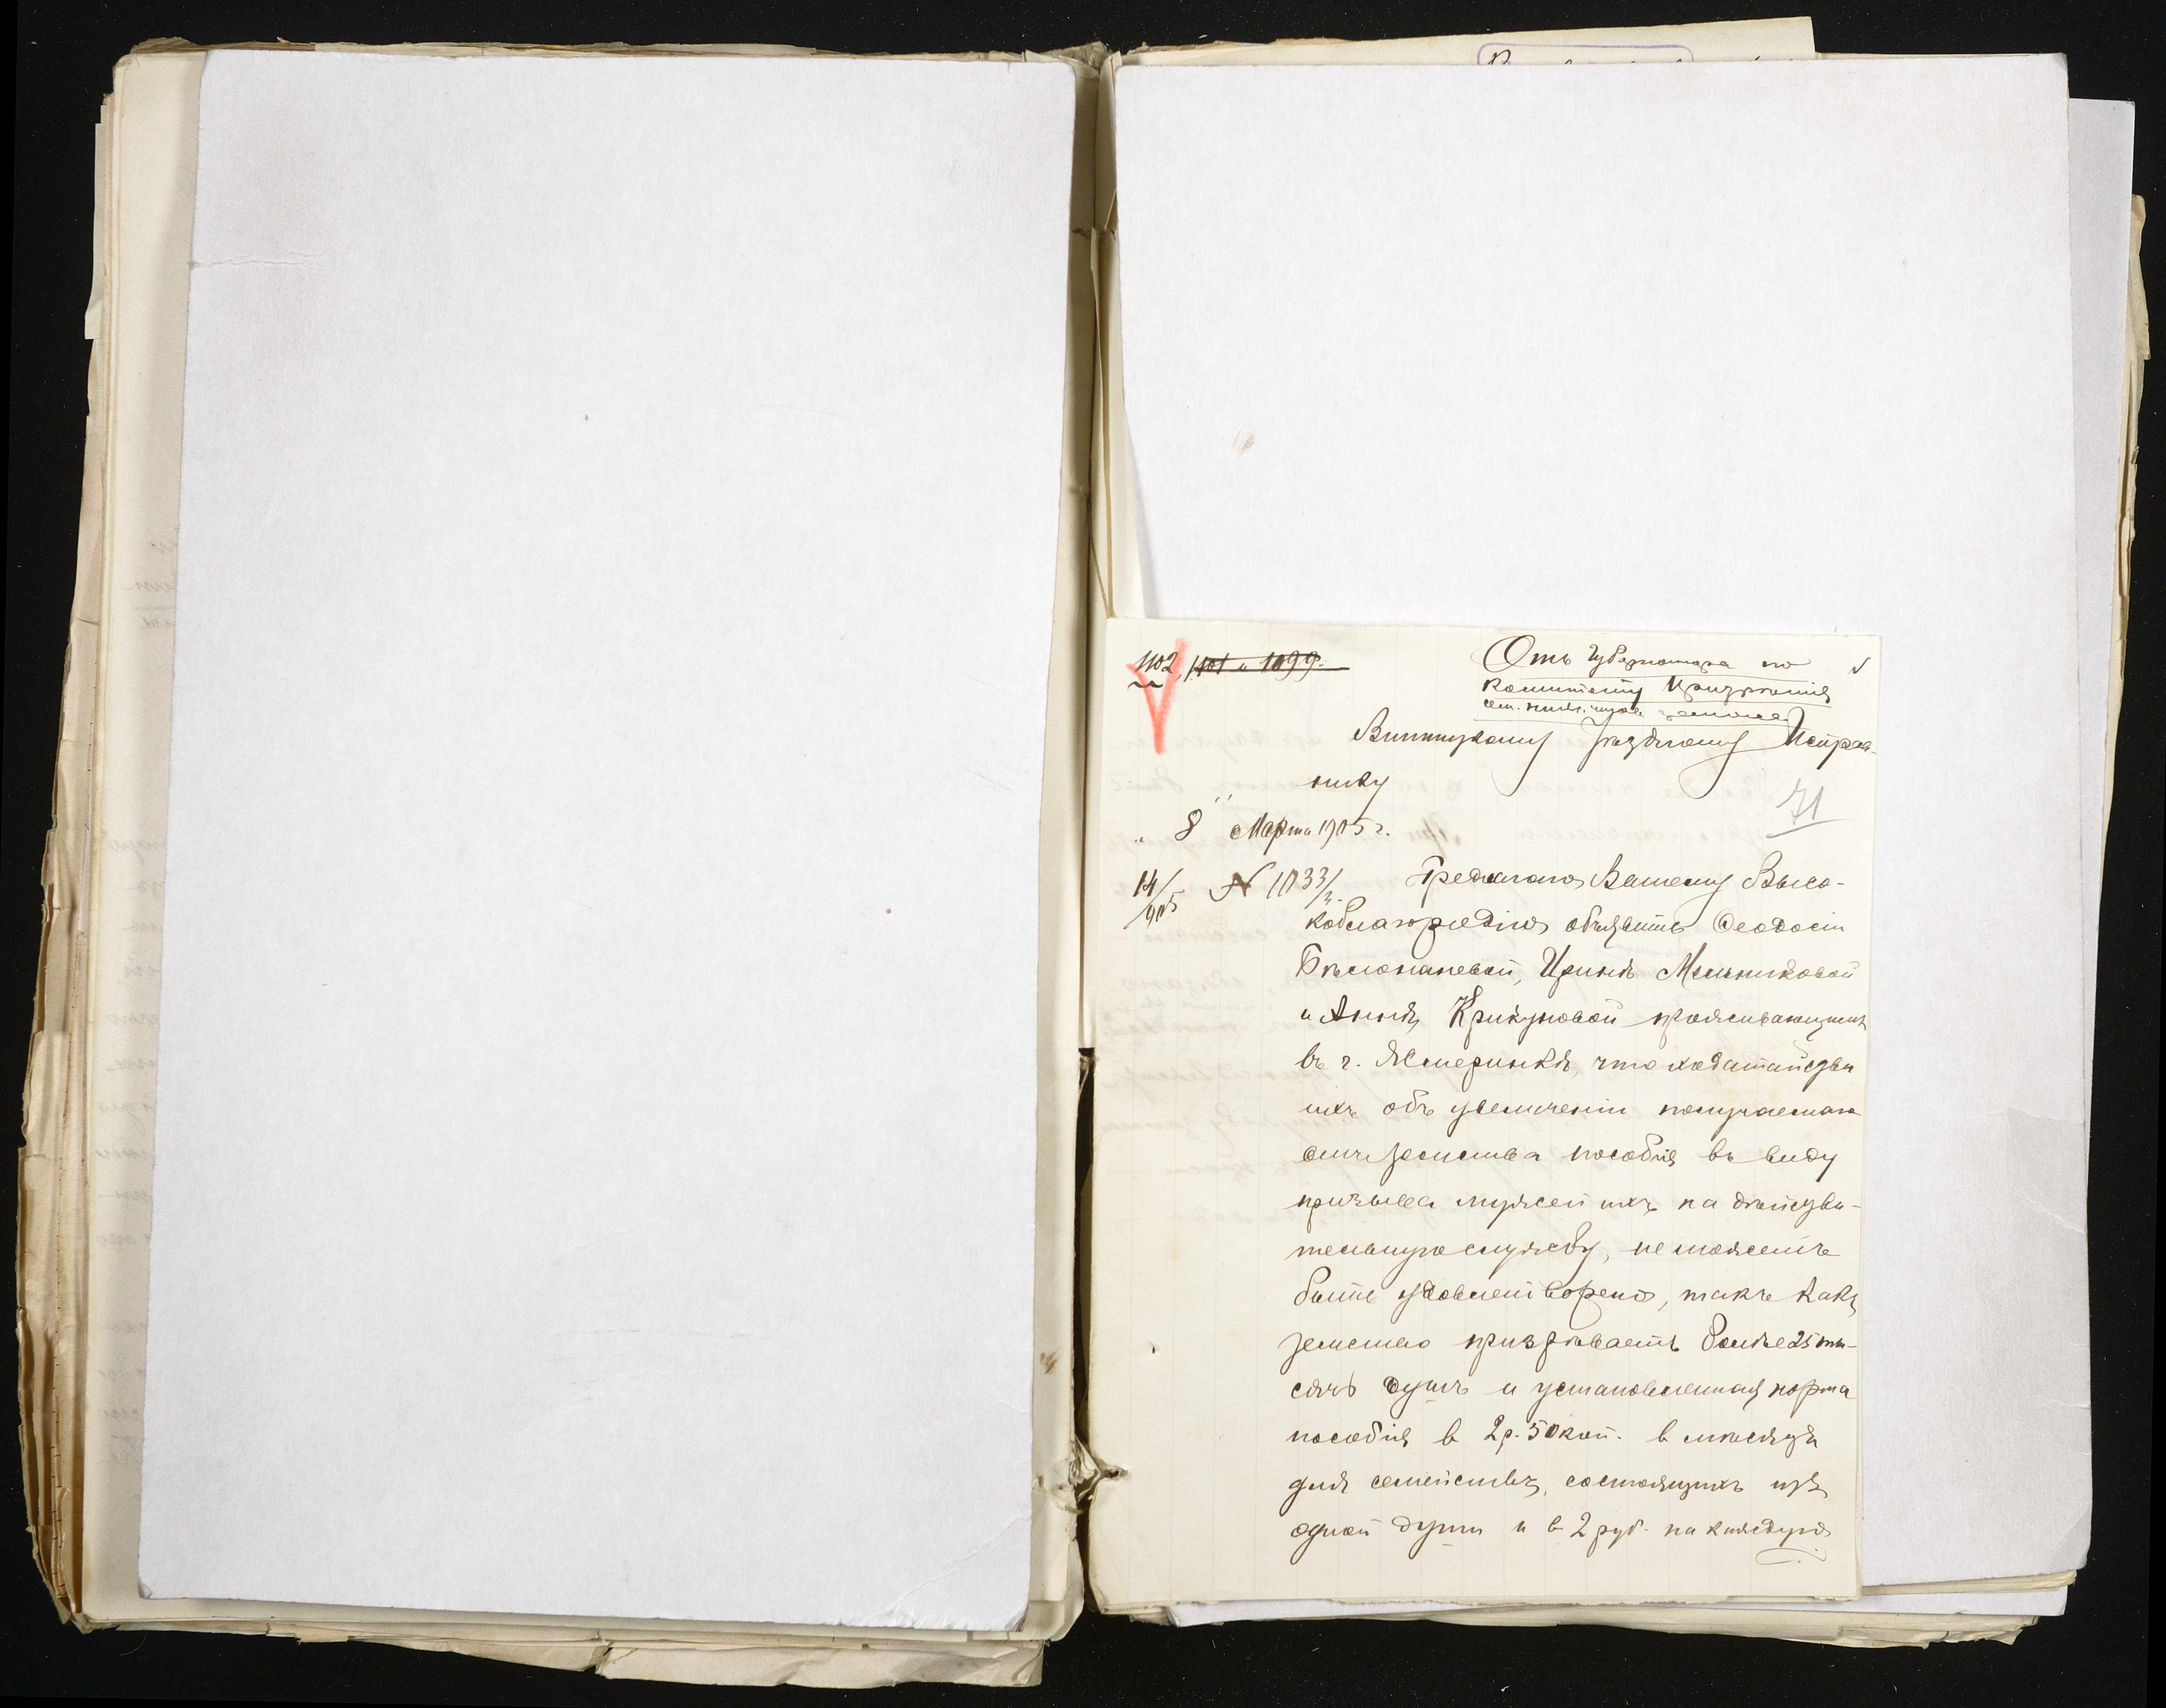 1102, 1101 и 1099.
Отъ Губернатора по
Комитету Призрѣнія
сем. нижн. чиновъ
Винницкому Уѣздному Исправ-
нику
71
„ 8 " Марта 1905 г.
14/905 № 1033/
Предлагаю Вашему Высо-
коблагородію объявить Ѳеодосіи
Бѣлоконевой, Иринѣ Мельниковой
и Аннѣ Крикуновой проживающимъ
въ г. Жмеринкѣ, что ходатайства
ихъ объ увеличеніи получаемаго
отъ земства пособія въ виду
призыва мужей ихъ на дѣйстви-
тельную службу, не можетъ
быть удовлетворено, такъ какъ
земство призрѣваетъ болѣе 25 ты-
сячъ душъ и установленная норма
пособія в 2 р. 50 коп. в мѣсяцъ
для семействъ, состоящихъ изъ
одной души и в 2 руб. на каждую